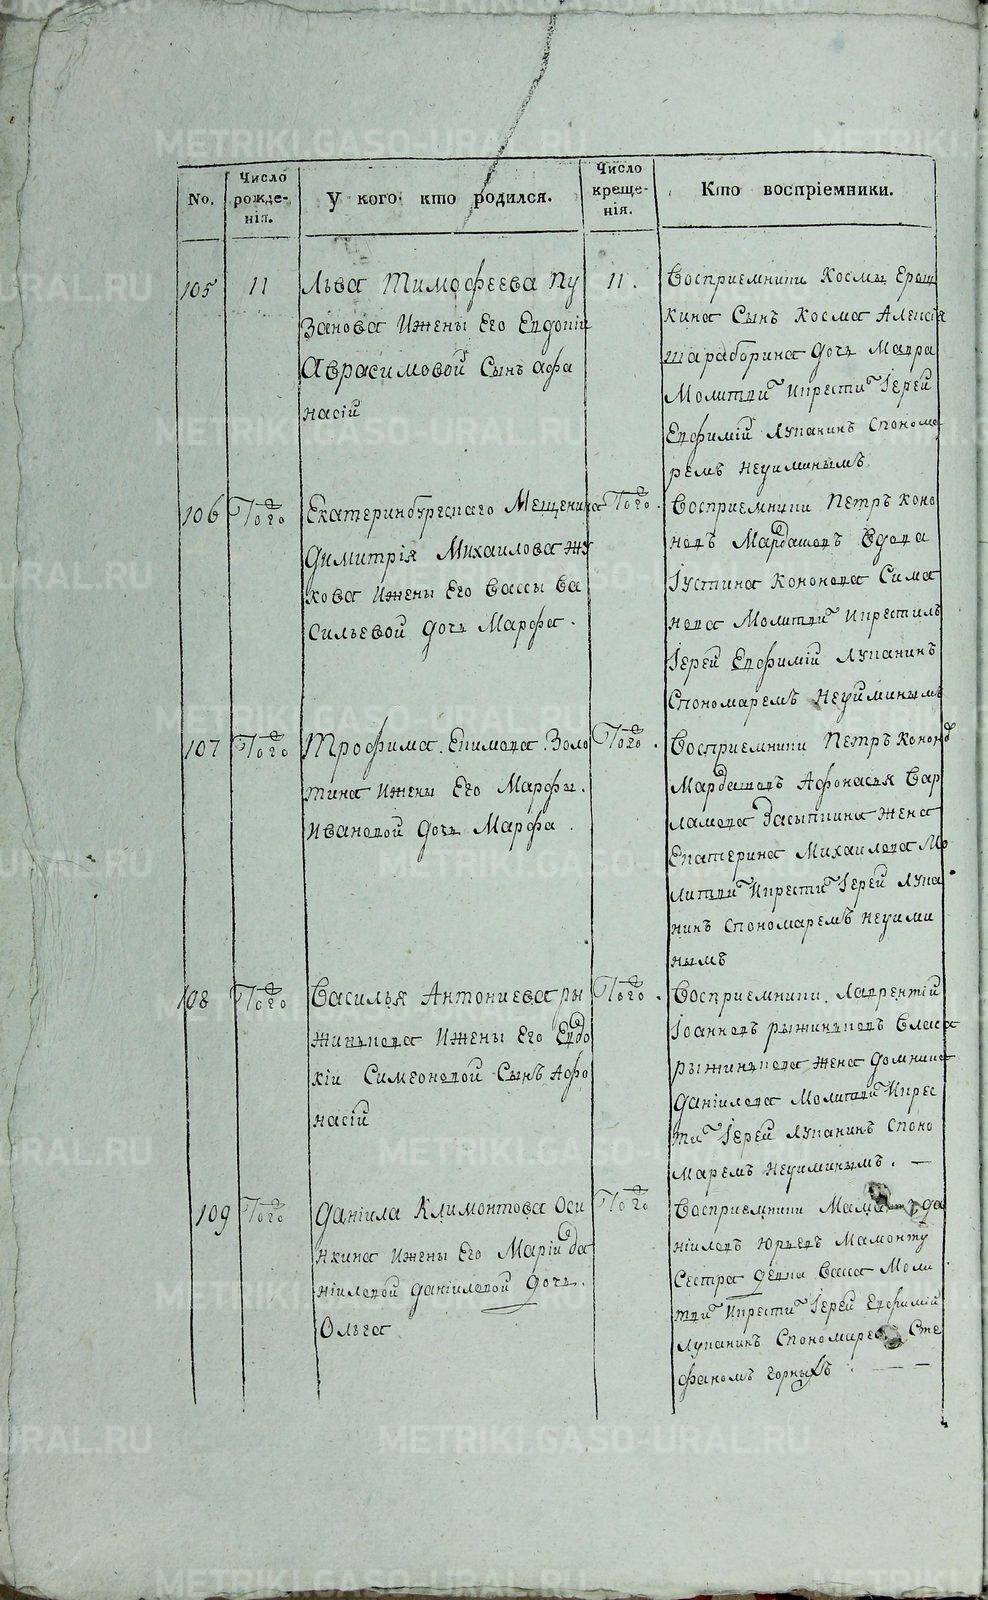 No.
Число рожде-нія.
У кого кто родился.
Число креще-нія.
Кто воспріемники.
105
11
Льва Тимофеева Пу
занова Ижены Его Евдокіи
Аврасимовой Сынъ Афа
насій
11.
Восприемники Космы Ерощ
кина Сынъ Косма Алексія
Тараборина дочь Мавра
Молитви Икрести Іерей
Евфимій Лупанинъ спонома
ремъ Неуиминымъ
106
Того
Екатеринбургскаго Мещенина
Димитрія Михаилова Жу
кова Ижены Его Вассы Ва
сильевой дочь Марфа.
Того.
Восприемники Петръ Коно
новъ Мардашовъ Вдова
Іустина Кононова Сима
нова Молитви Икрестилъ
Іерей Евфимій Лупанинъ
Спономаремъ Неуиминымъ
107
Того
Трофима Екимова Золо
тина Ижены Его Марфы.
Ивановой дочь Марфа.
Того.
Восприемники Петръ Кононо
Мардашовъ Афонасья Вар
ламова Засыпкина жена
Екатерина Михаилова Мо
литви Икрести Іерей Лупа
нинъ спономаремъ Неуими
нымъ
108
Того
Василья Антониева ры
жинькова Ижены Его Евдо
кіи Симеоновой Сынъ Афо
насій
Того.
Восприемники Лаврентій
Іоанновъ рыжиньковъ Власа
рыжинькова жена домника
Даніилова Молитви Икрес
ти Іерей Лупанинъ Споно
маремъ Неуиминымъ. —
109
Того
Даніила Климонтова Оси
нкина Ижены Его Маріи Да
ніиловой Даніиловой дочь.
Ольга
Того
Восприемники Да
ніиловъ Юрьевъ Мамонту
Сестра девка Васса Моли
тви Икрести Іерей Евфимій
Лупанинъ Спономаремъ Сте
фаномъ Горныхъ
METRIKI.GASO-URAL.RU